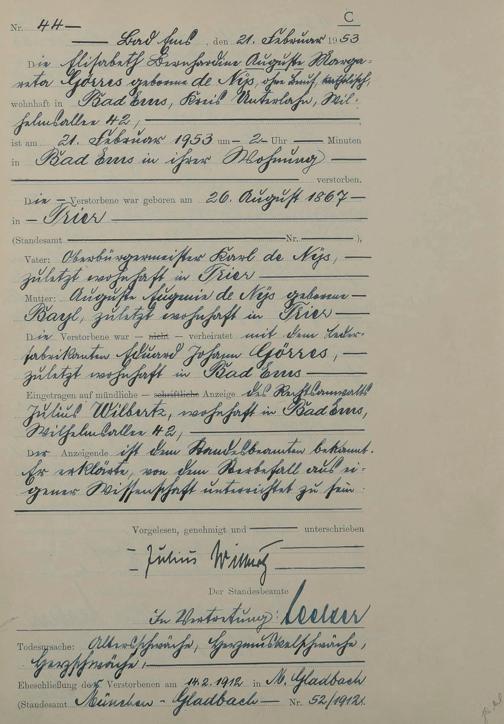 C
Nr. 44
Bad Ems, den 21. Februar 1953
Die Elisabeth Bernhardine Auguste Marga-
reta Görres geborene de Nÿs, ohne Beruf, katholisch,
wohnhaft in Bad Ems, Kreis Unterlahn, Wil-
helmsallee 42,
ist am 21. Februar 1953 um 2 Uhr Minuten
in Bad Ems in ihrer Wohnung
verstorben.
Die Verstorbene war geboren am 26. August 1867
in Trier
(Standesamt Nr. ),
Vater: Oberbürgermeister Karl de Nÿs,
zuletzt wohnhaft in Trier
Mutter: Auguste Eugenie de Nÿs geborene
Bayl, zuletzt wohnhaft in Trier
Die Verstorbene war – nicht – verheiratet mit dem Leder-
fabrikanten Eduard Johann Görres,
zuletzt wohnhaft in Bad Ems
Eingetragen auf mündliche – schriftliche Anzeige des Rechtsanwalts
Julius Wilbertz, wohnhaft in Bad Ems,
Wilhelmsallee 42,
Der Anzeigende ist dem Standesbeamten bekannt.
Er erklärte, von dem Sterbefall aus ei-
gener Wissenschaft unterrichtet zu sein.
Vorgelesen, genehmigt und unterschrieben
Julius
Der Standesbeamte
In Vertretung:
Todesursache: Altersschwäche, Herzmuskelschwäche,
Herzschwäche,
Eheschließung der Verstorbenen am 14.2.1912 in M. Gladbach
(Standesamt München-Gladbach Nr. 52/1912).